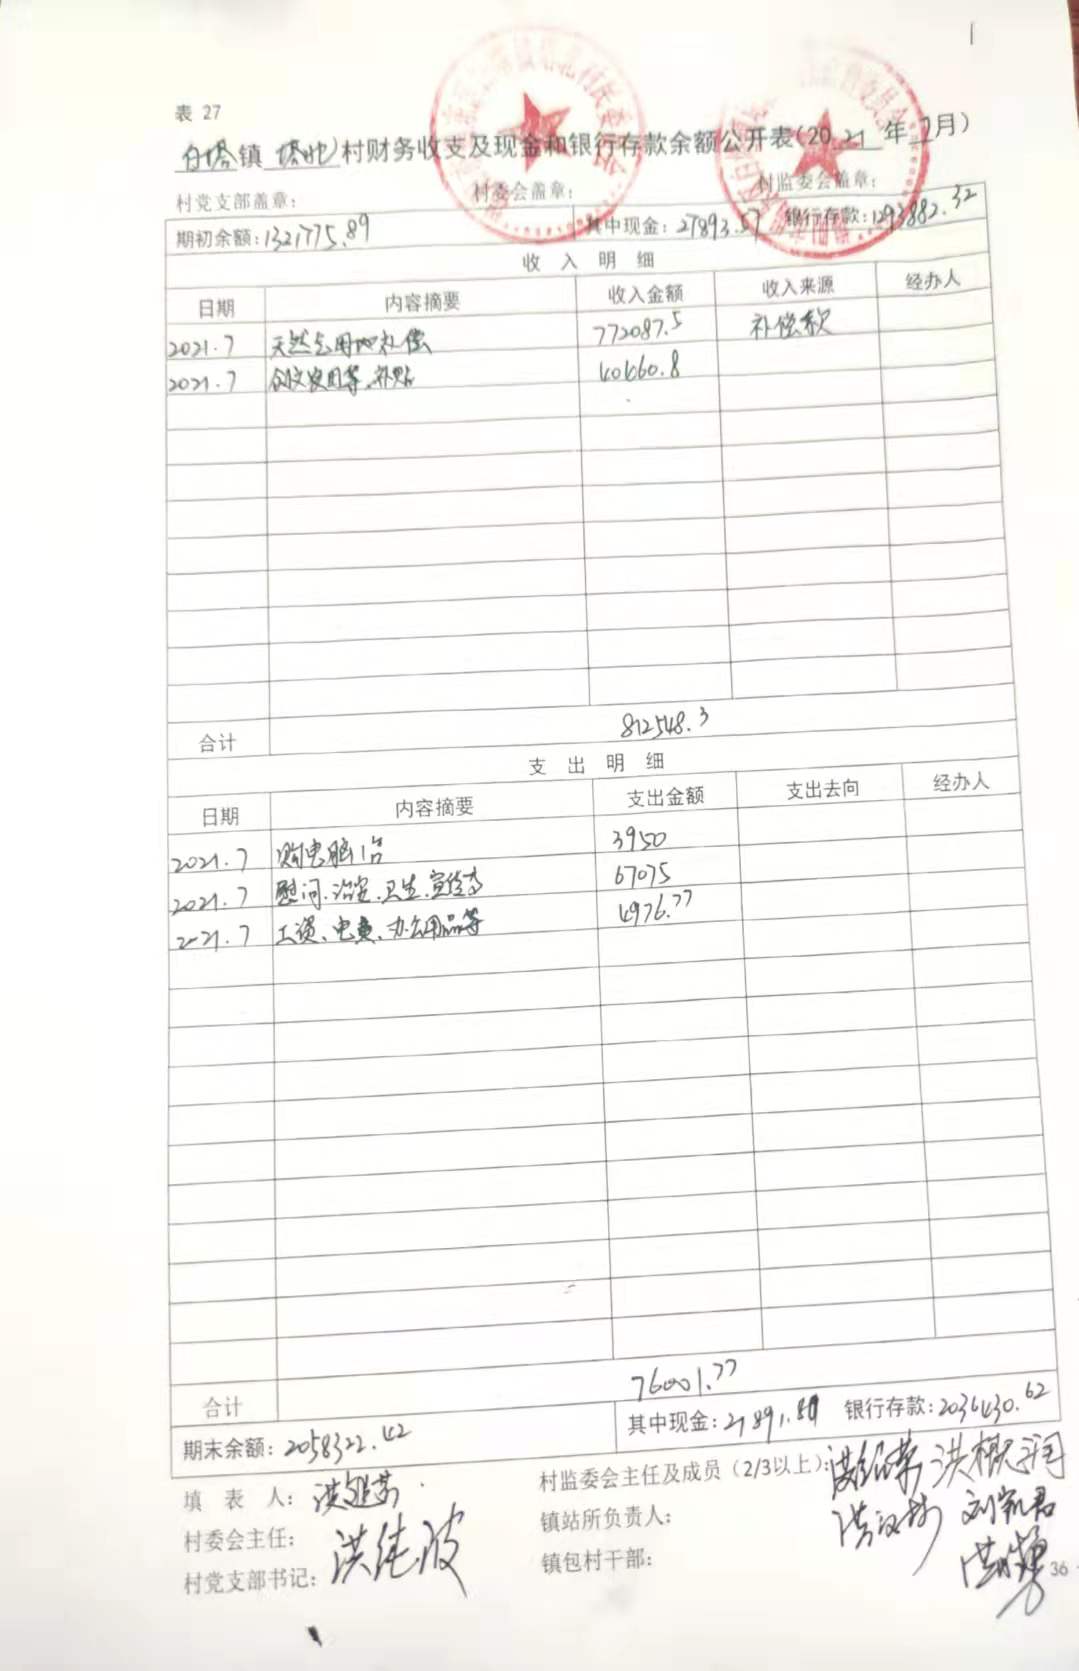 表 27
白塔镇 塔北村财务收支及现金和银行存款余额公开表(2021年7月)
村党支部盖章: 村委会盖章: 村监委会盖章:
期初余额:1321775.89 其中现金:27893.57 银行存款:1293882.32
收 入 明 细
日期 内容摘要 收入金额 收入来源 经办人
2021.7 天然气用地补偿 772087.5 补偿款
2021.7 补贴 40460.8
合计 812548.3
支 出 明 细
日期 内容摘要 支出金额 支出去向 经办人
2021.7 购电脑1台 3950
2021.7 慰问、治安、卫生、宣传等 67075
2021.7 工资、电费、办公用品等 4976.77
合计 76001.77
期末余额:2058322.42 其中现金:21891.80 银行存款:2036430.62
填 表 人: 村监委会主任及成员(2/3以上):
村委会主任: 洪纯波 镇站所负责人: 刘凯君
村党支部书记: 镇包村干部:
36